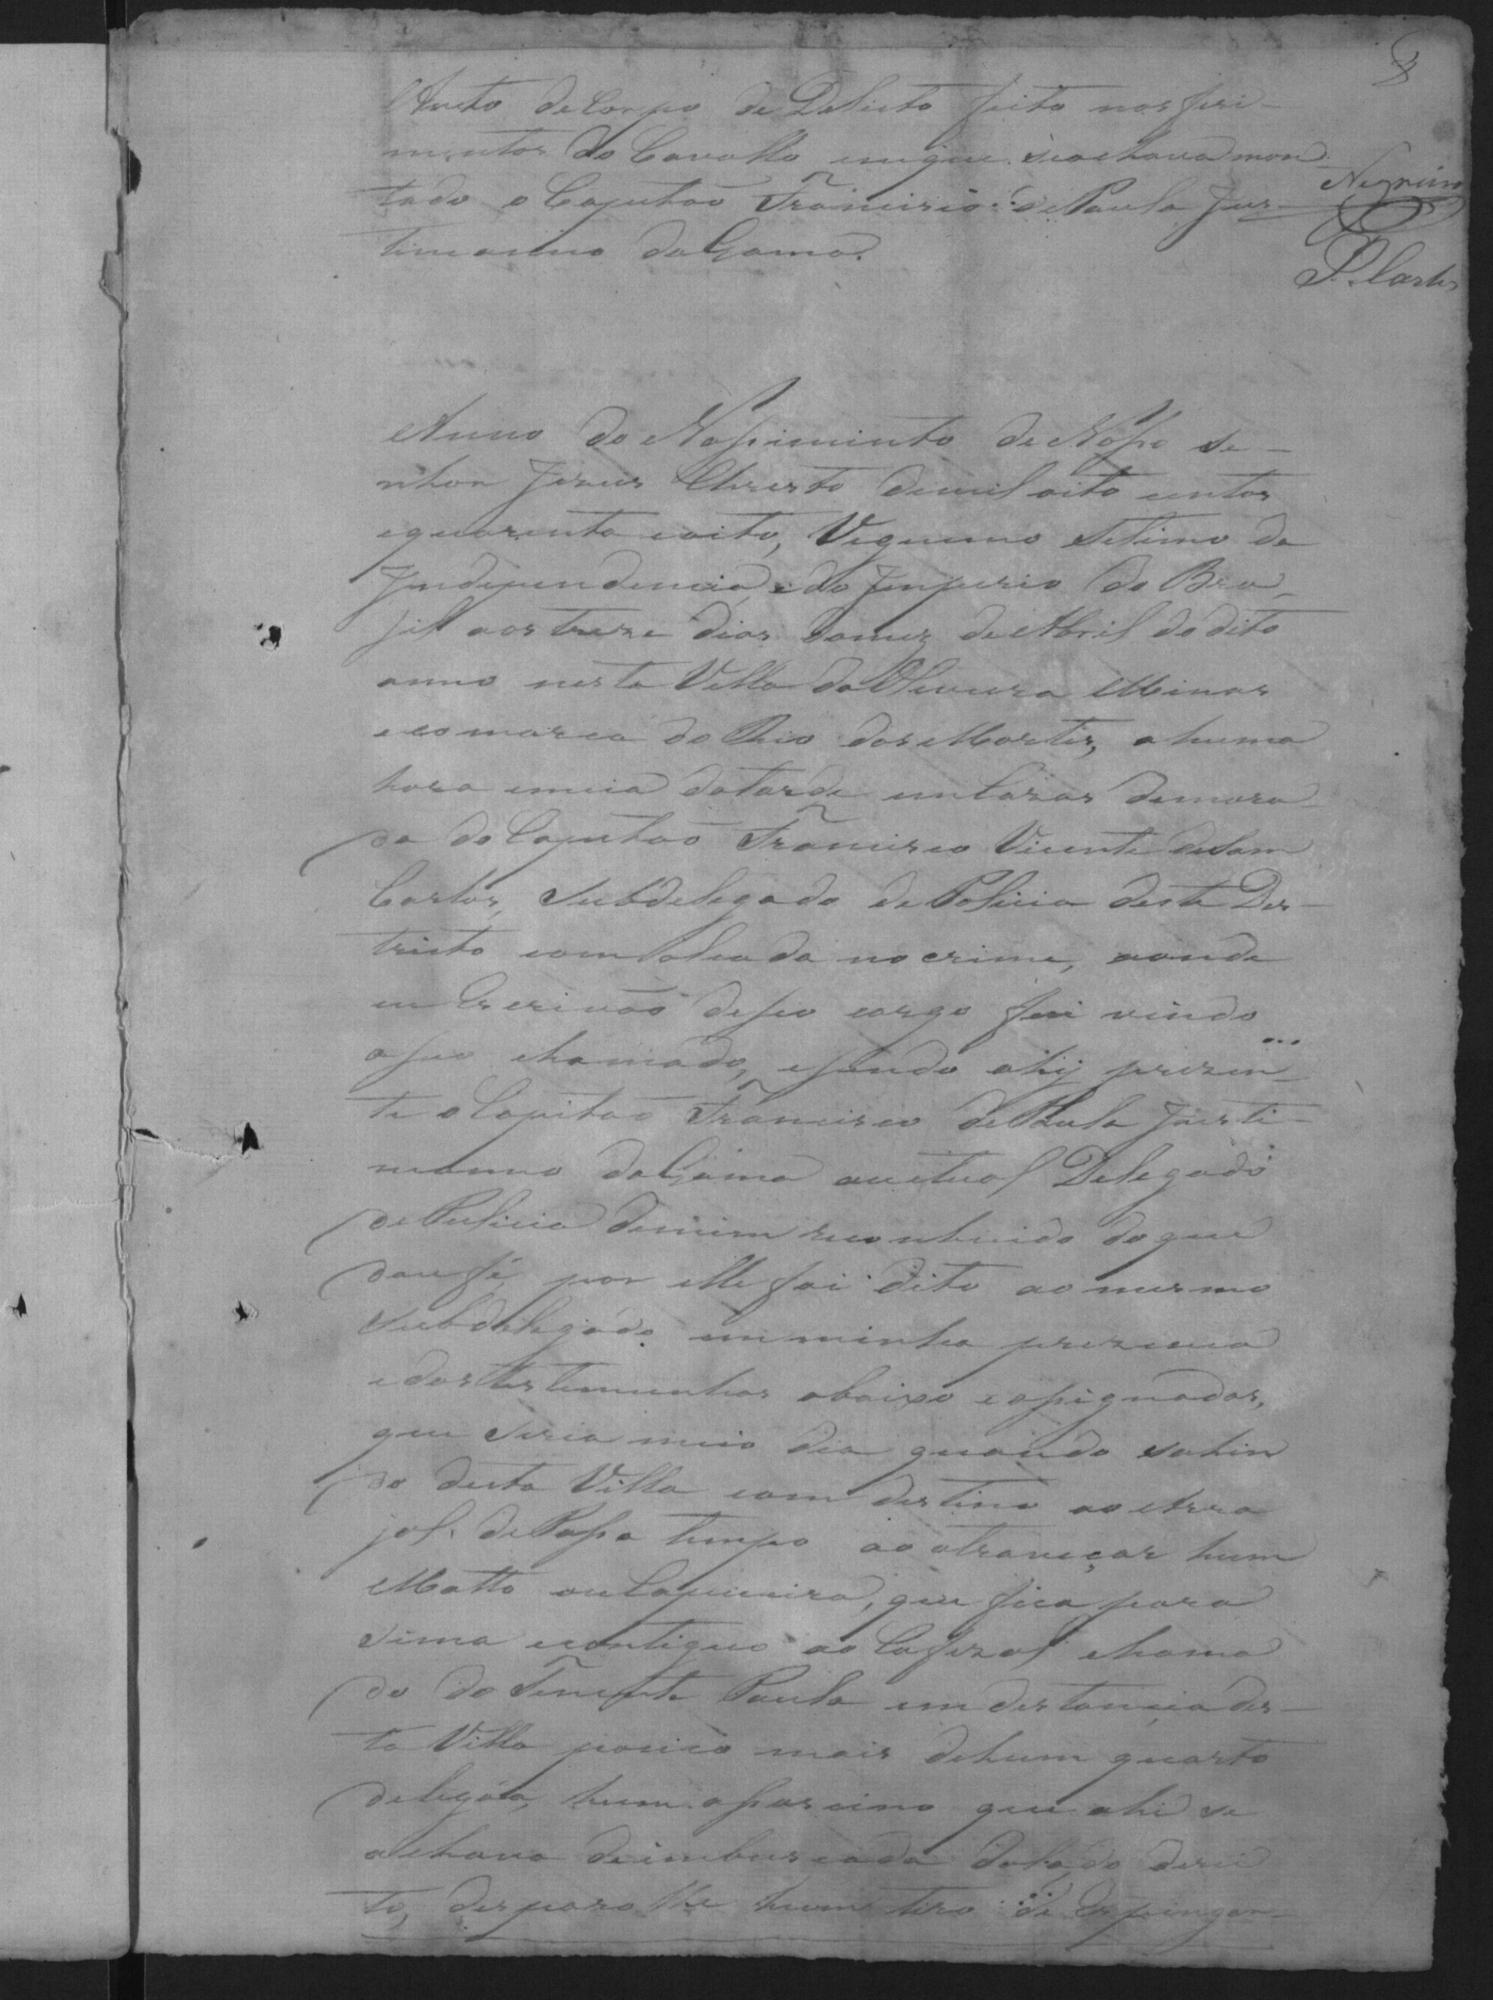 Auto de Corpo de Delicto feito nos feri-
mentos do Cavallo em que se achava mon-
tado o Capitão Francisco de Paula Jus-
tiniano da Gama.
S. Carlos
Anno do Nascimento de Nosso Se-
nhor Jesus Christo de mil oito centos
e quarenta e oito, Vegesimo Setimo da
Independencia, e do Imperio do Bra-
sil aos treze dias do mez de Abril do dito
anno nesta Villa da Oliveira Minas
e comarca do Rio das Mortes, a huma
hora e meia da tarde em Cazas de mora-
da do Capitão Francisco Vicente de Sam
Carlos, Subdelegado de Policia deste Des-
tricto com alçada no crime, aonde
eu Escrivão de seo cargo fui vindo
a seo chamado, e sendo ahy prezen-
te o Capitão Francisco de Paula Justi-
nianno da Gama auctual Delegado
de Policia de mim reconhecido do que
dou fé, por elle foi dito ao mesmo
Subdelegado em minha prezença
e das testemunhas abaixo e assignadas,
que seria meio dia quando sahin
do desta Villa com destino ao Arra
jal de Passa tempo ao atraveçar hum
Matto ou Capueira, que fica para
sima e contiguo ao Cafezal chama
do do Tenente Paula em distancia des-
ta Villa pouco mais de hum quarto
de legoa, hum assascino que ahi se
achava de imbuscada do lado direi
to, desparo lhe hum tiro de Espingar-